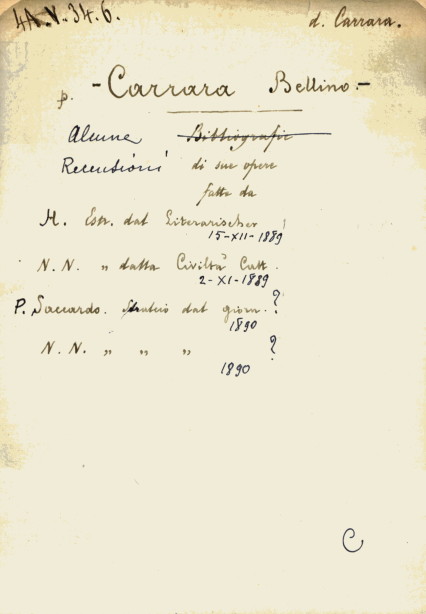 4A.V.34.6.
d. Carrara.
p. - Carrara Bellino. -
Alcune Bibliografie
Recensioni di sue opere
fatte da
H. Estr. dal Literarischer
15-XII-1889
N.N. „ dalla Civiltà Catt.
2-XI-1889
P. Saccardo. Stralcio dal giorn. ?
1890
N.N. „ „ „ ?
1890
C